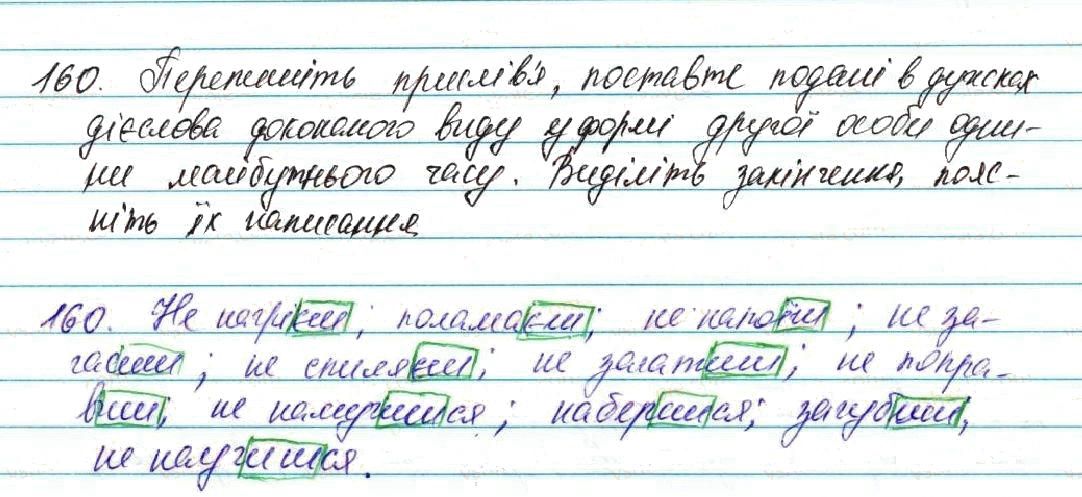 160. Перепишіть прислів'я, поставте подані в дужках
дієслова доконаного виду у формі другої особи одни-
ни майбутнього часу. Виділіть закінчення, пояс-
ніть їх написання
160. Не нагрієш; поламаєш; не напоїш; не за-
гасиш; не спиляєш; не залатиш; не попра-
виш; не намучишся; наберешся; загубиш,
не научишся.